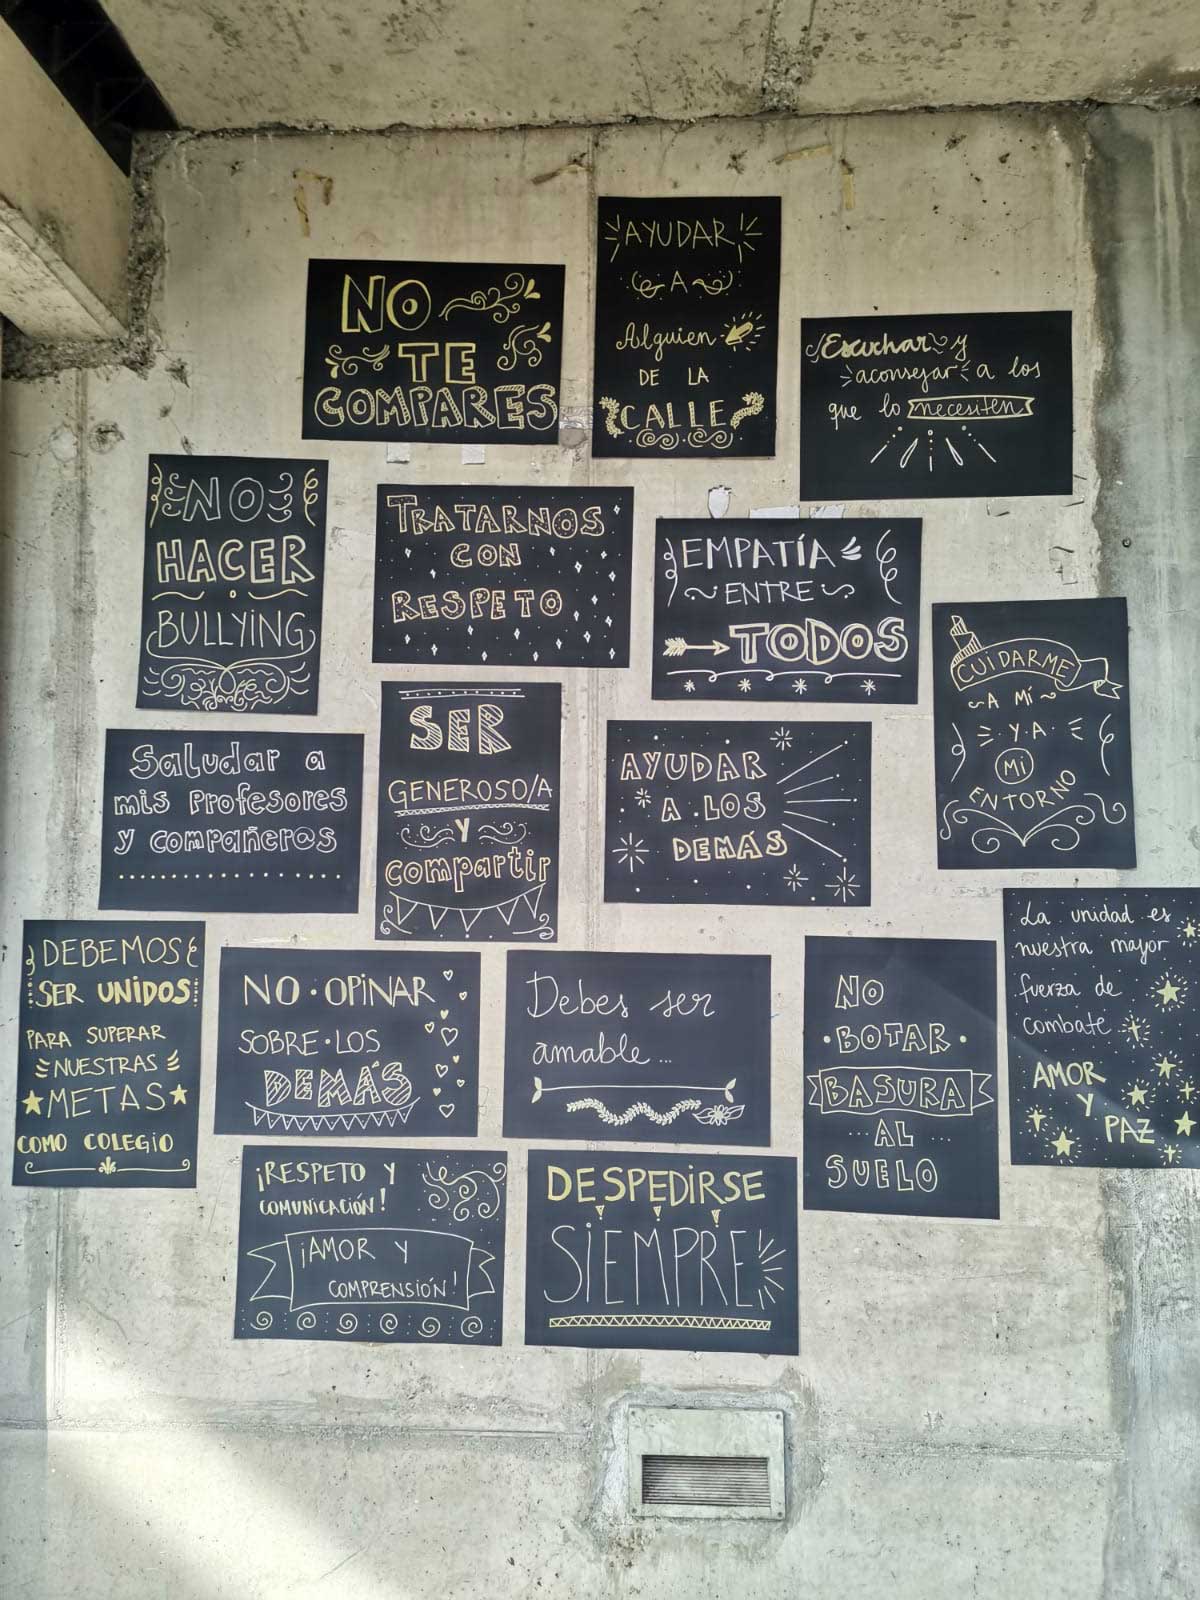 NO
TE
COMPARES
AYUDAR
A
Alguien
DE LA
CALLE
Escuchar y
aconsejar a los
que lo necesiten
NO
HACER
BULLYING
TRATARNOS
CON
RESPETO
EMPATÍA
ENTRE
TODOS
CUIDARME
A MÍ
Y A
Mi
ENTORNO
Saludar a
mis Profesores
y compañer@s
SER
GENEROSO/A
Y
compartir
AYUDAR
A LOS
DEMÁS
DEBEMOS
SER UNIDOS
PARA SUPERAR
NUESTRAS
METAS
COMO COLEGIO
NO · OPINAR
SOBRE · LOS
DEMÁS
Debes ser
amable...
NO
· BOTAR ·
BASURA
... AL ...
SUELO
La unidad es
nuestra mayor
fuerza de
combate
AMOR
Y
PAZ
¡RESPETO Y
COMUNICACIÓN!
¡AMOR Y
COMPRENSIÓN!
DESPEDIRSE
SIEMPRE